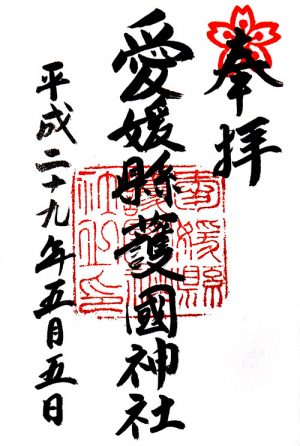 奉拝
愛媛縣護國神社
平成二十九年五月五日
愛媛縣護國神社印